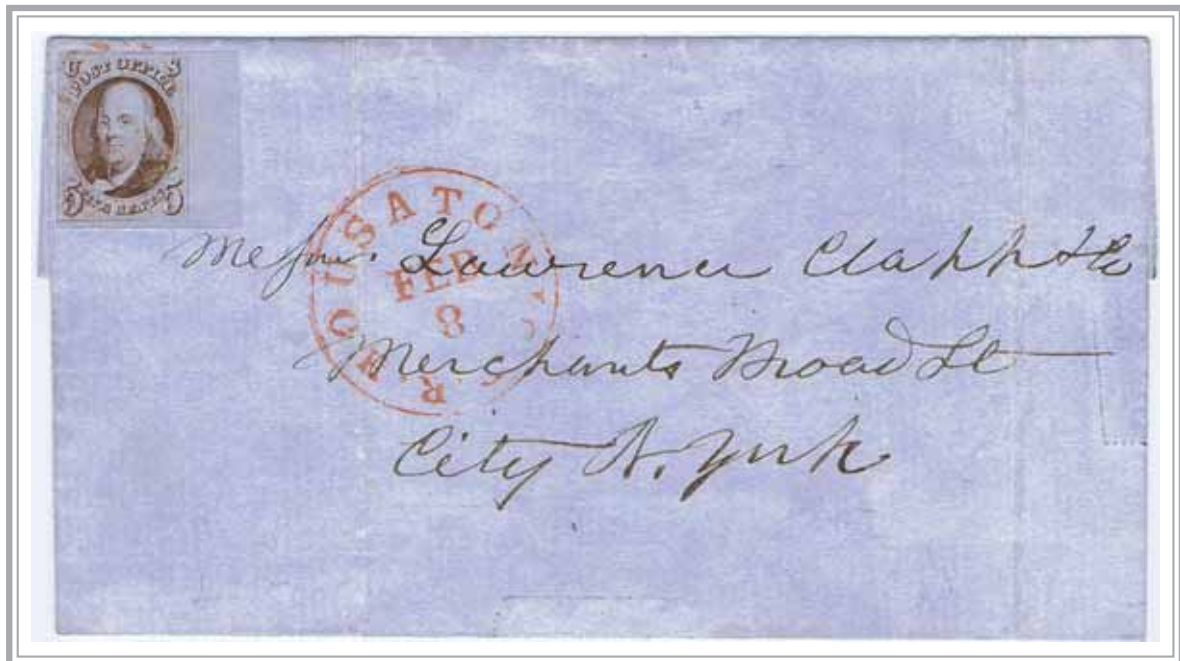 POST OFFICE
FIVE CENTS
5 5
HOUSATONIC R.R.
FEB
8
Messrs. Lawrence Clapp & Co
Merchants Broad St
City N. York